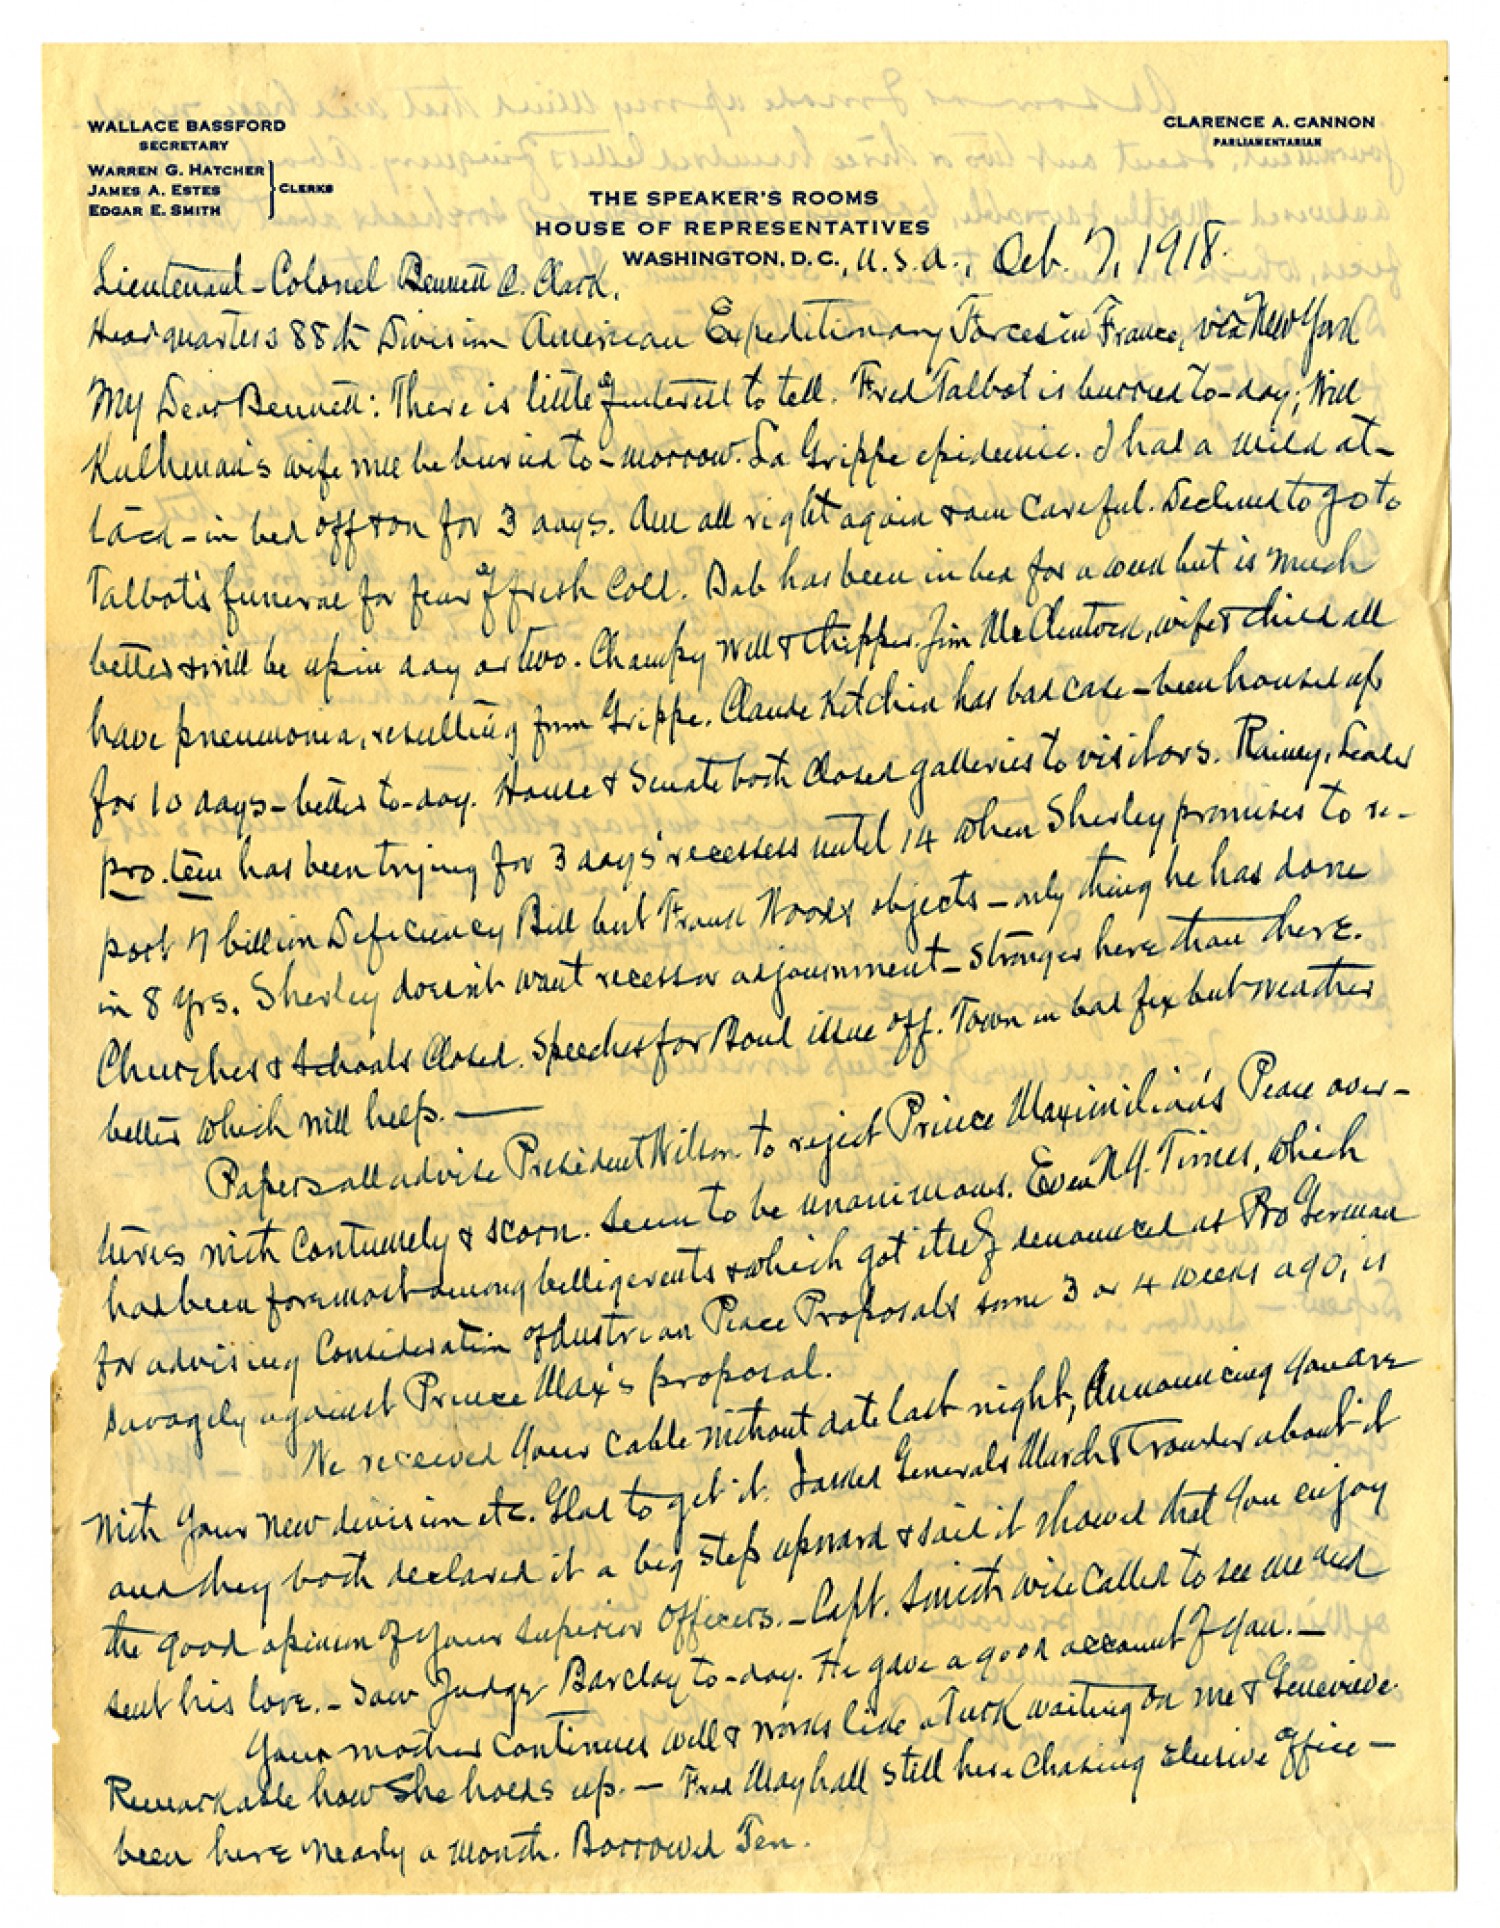 WALLACE BASSFORD
SECRETARY
WARREN G. HATCHER
JAMES A. ESTES
EDGAR E. SMITH
CLERKS
CLARENCE A. CANNON
PARLIAMENTARIAN
THE SPEAKER'S ROOMS
HOUSE OF REPRESENTATIVES
WASHINGTON, D. C., U. S. A., Oct. 7, 1918.
Lieutenant-Colonel Bennett C. Clark,
Headquarters 88th Division American Expeditionary Forces in France, via New York
My Dear Bennett: There is little of interest to tell. Fred Talbot is burried to-day; Will
Kulhman's wife will be buried to-morrow. La Grippe epidemic. I had a mild at-
tack - in bed off & on for 3 days. Am all right again & am careful. Declined to go to
Talbot's funeral for fear of fresh cold. Bab has been in bed for a week but is much
better & will be up in day or two. Champy well & chipper. Jim McClintock, wife & child all
have pneumonia, resulting from Grippe. Claude Kitchin has bad case - been housed up
for 10 days - better to-day. House & Senate both closed galleries to visitors. Rainey, Leader
pro. tem has been trying for 3 days' recesses until 14 when Sherley promises to re-
port 7 billion Deficiency Bill but Frank Woods objects - only thing he has done
in 8 yrs. Sherley doesn't want recess or adjournment - Stronger here than there.
Churches & Schools Closed. Speeches for Bond issue off. Town in bad fix but weather
better which will help. —
Papers all advise President Wilson to reject Prince Maximilian's Peace over-
tures with contumely & scorn. Seem to be unanimous. Even N.Y. Times, which
had been foremost among belligerents & which got itself denounced as Pro German
for advising Consideration of Austrian Peace Proposals some 3 or 4 weeks ago, is
savagely against Prince Max's proposal.
We received your cable without date last night, Announcing you are
with your new division etc. Glad to get it. Asked Generals March & Crowder about it
and they both declared it a big step upward & said it showed that you enjoy
the good opinion of your superior officers. - Capt. Smith wife called to see me and
sent his love. - Saw Judge Barclay to-day. He gave a good account of you. -
Your mother continues well & works like a Turk waiting on me & Genevieve.
Remarkable how she holds up. - Fred Mayhall still here chasing elusive office -
been here nearly a month. Borrowed Ten.